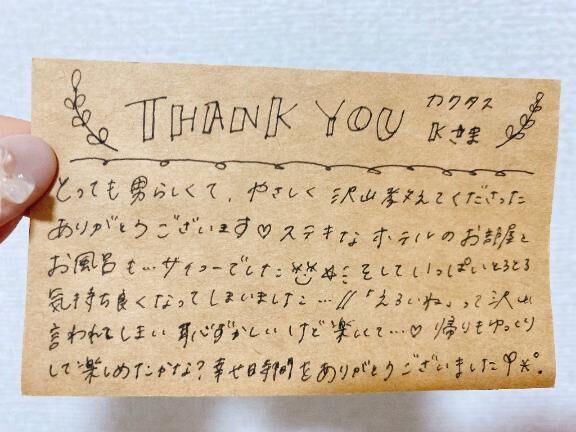 THANK YOU カクタス
Kさま
とっても男らしくて、やさしく沢山教えてくださった
ありがとうございます♡ステキなホテルのお部屋と
お風呂も…サイコーでした そしていっぱいとろとろ
気持ち良くなってしまいました…〃「えろいね」って沢山
言われてしまい恥ずかしいけど楽しくて…♡帰りもゆっくり
して楽しめたかな?幸せ時間をありがとうございました